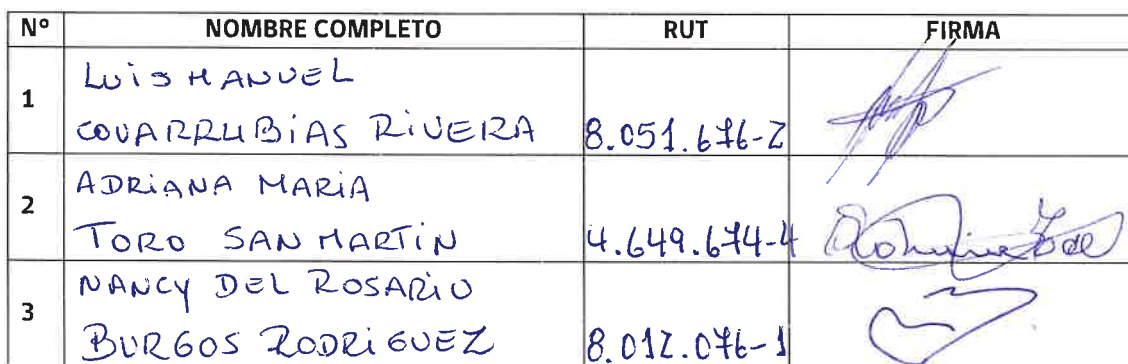 Nº NOMBRE COMPLETO RUT FIRMA
1 LUIS MANUEL
COVARRUBIAS RIVERA 8.051.676-2
2 ADRIANA MARIA
TORO SAN MARTIN 4.649.674-4
3 NANCY DEL ROSARIO
BURGOS RODRIGUEZ 8.012.076-1